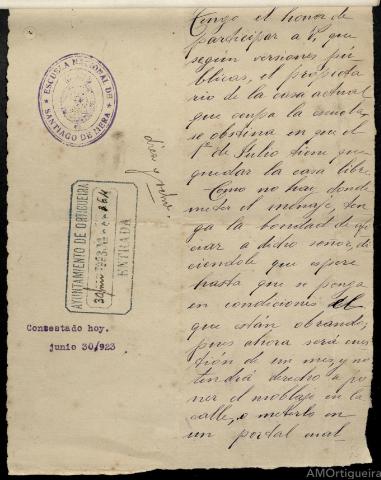 Tengo el honor de
participar a V. que
según versiones pú-
blicas, el propieta
rio de la casa actual
que ocupa la escuela,
se obstina en que el
1º de Julio tiene que
quedar la casa libre.
Como no hay donde
meter el menaje, ten
ga la bondad de ofi
ciar a dicho señor, di
ciendole que espere
hasta que se ponga
en condiciones el
que están obrando;
pues ahora será cues
tión de un mes, y no
tendrá derecho a po
ner el moblaje en la
calle, o meterlo en
un portal mat-
ESCUELA NACIONAL DE
SANTIAGO DE MERA
AYUNTAMIENTO DE ORTIGUEIRA
30 junio 1923
ENTRADA
Contestado hoy.
junio 30/923
AMOrtigueira